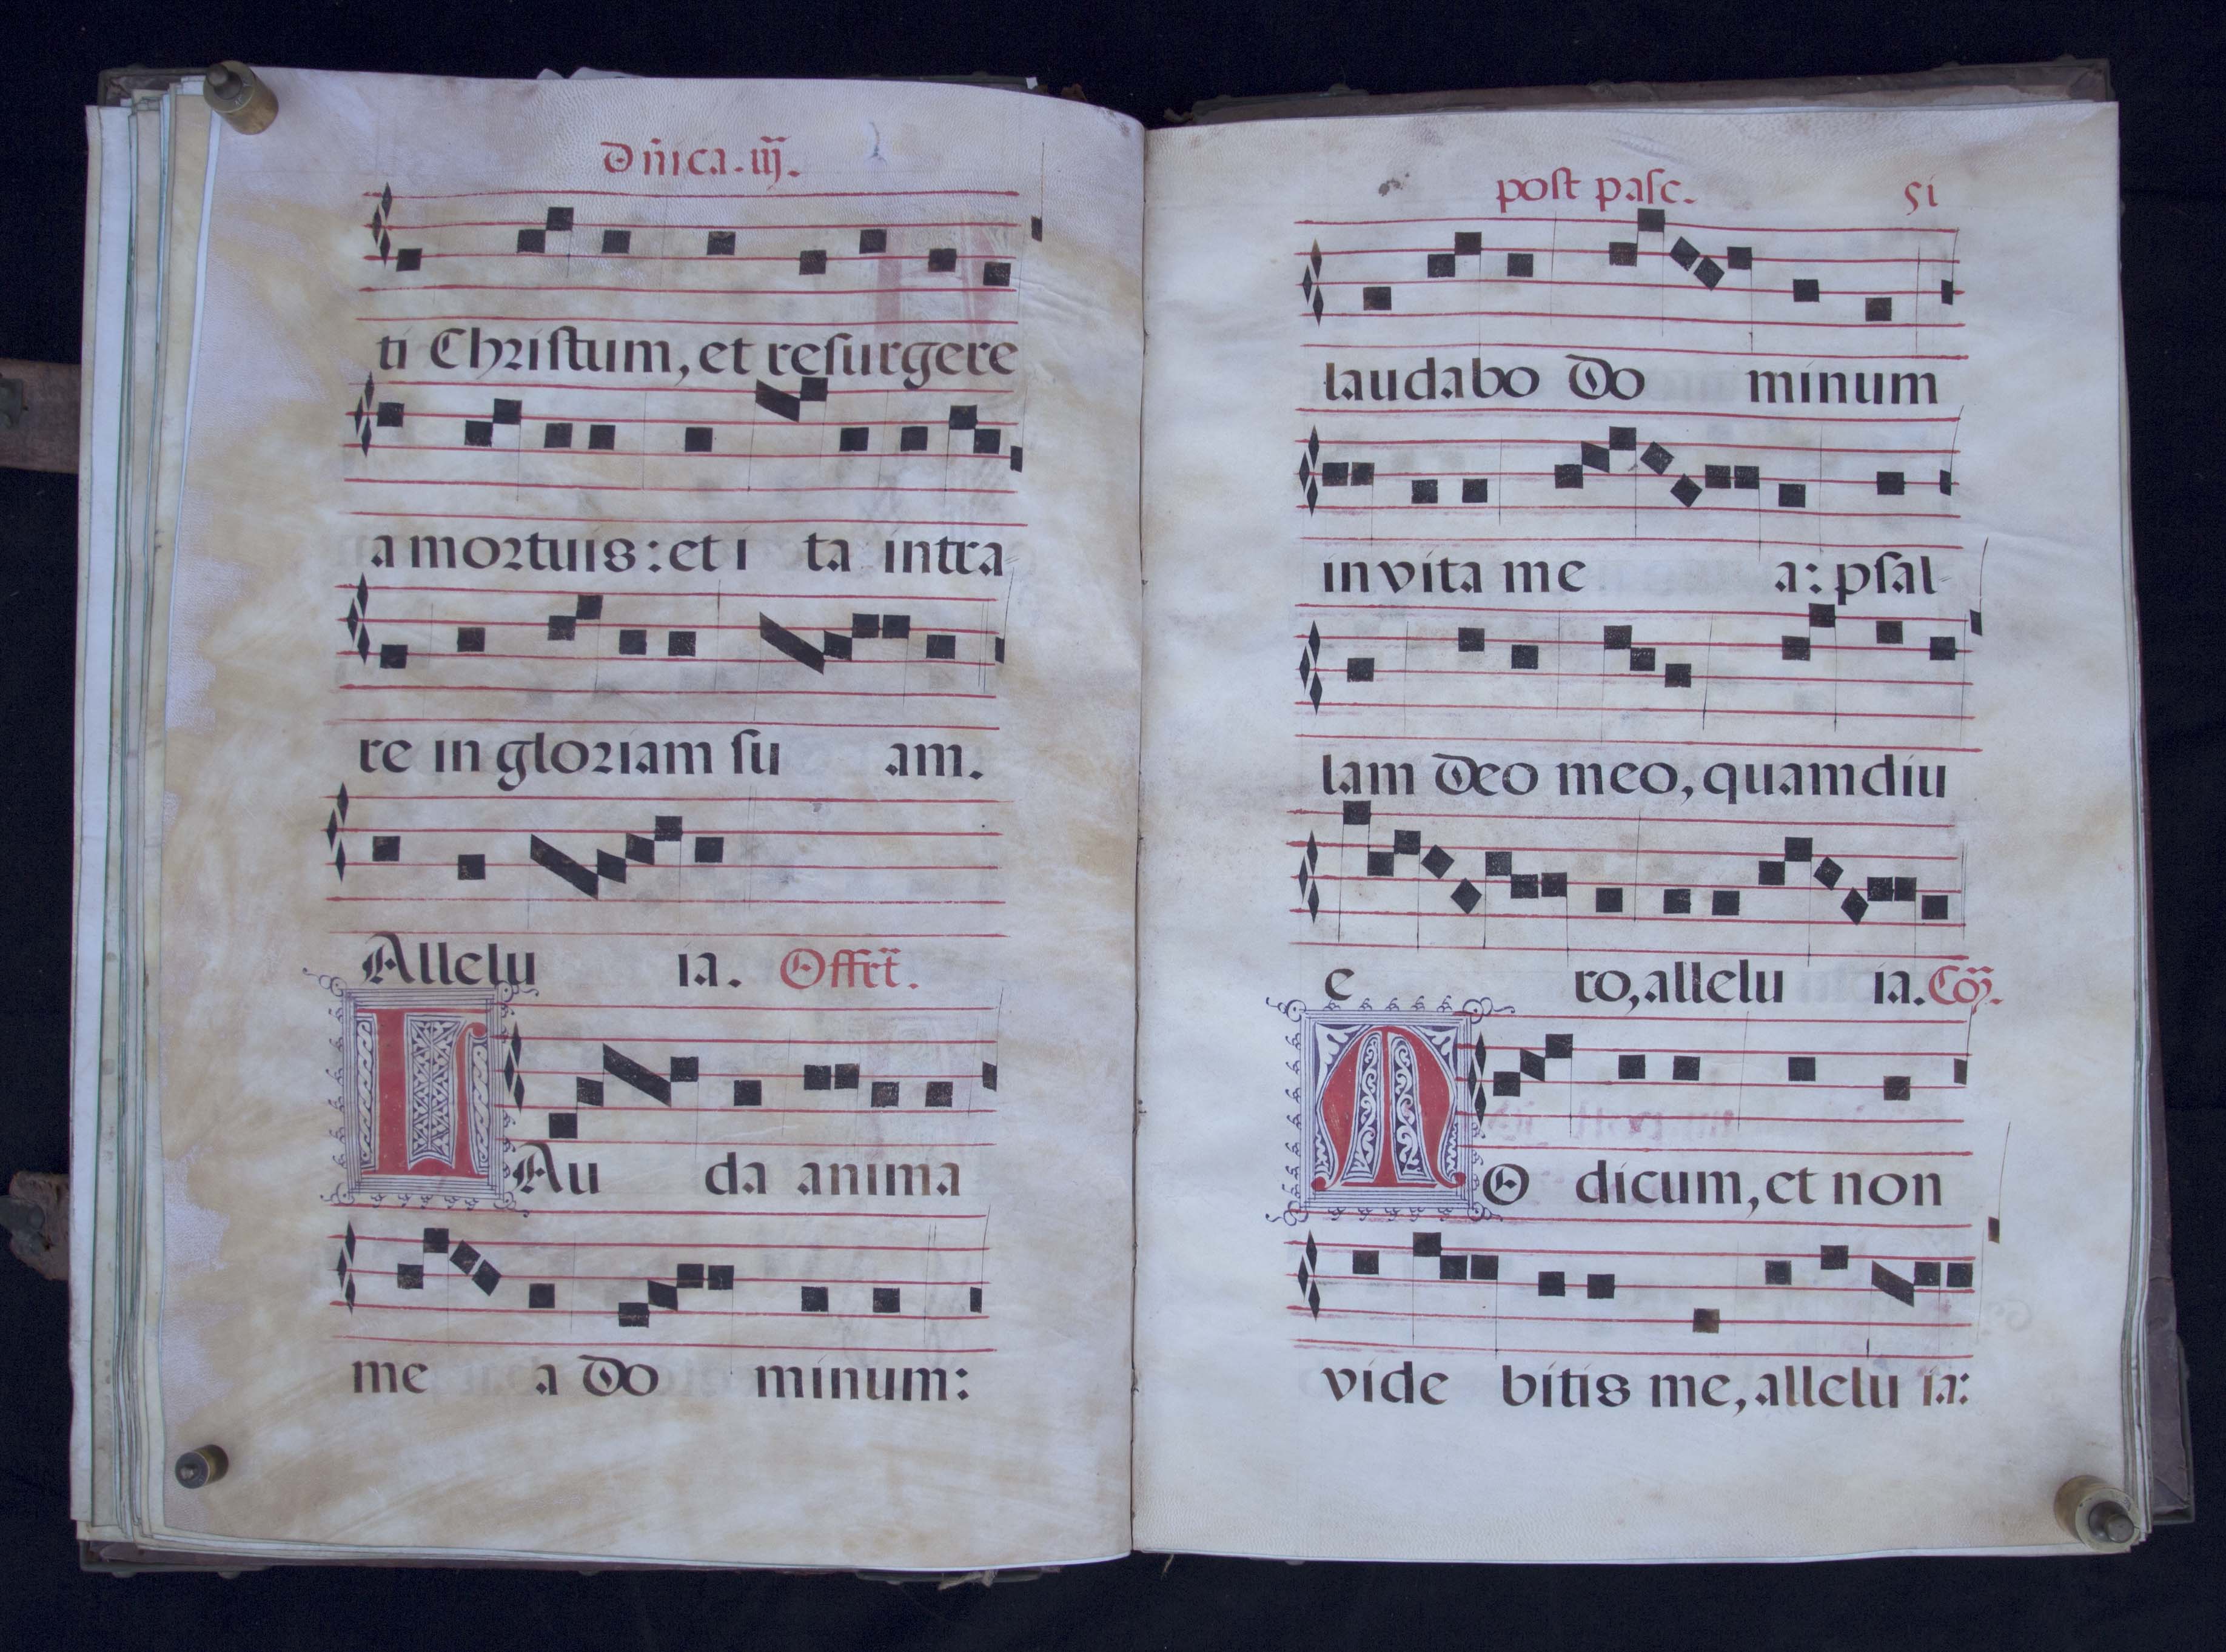 Dñica. iij.
ti Chriſtum, et reſurgere
a mortuis: et i ta intra-
re in gloriam ſu am.
Allelu ia. Offrt.
LAu da anima
me a Do minum:
poſt paſc. 51
laudabo Do minum
in vita me a: pſal-
lam Deo meo, quamdiu
e ro, allelu ia. Cõ.
MO dicum, et non
vide bitis me, allelu ia: